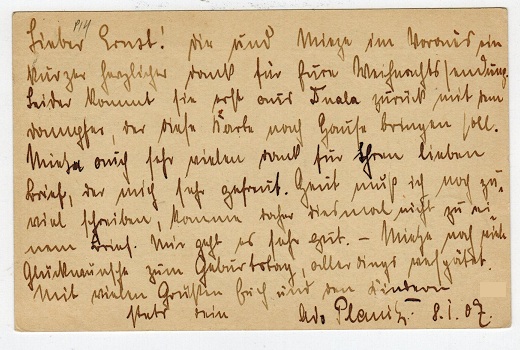 P14
Lieber Ernst! Dir und Mieze im Voraus ein
kurzer herzlicher Dank für Eure Weihnachtssendung.
Leider kommt sie erst aus Duala zurück mit dem
Dampfer, der diese Karte nach Hause bringen soll.
Mieze auch sehr vielen Dank für Ihren lieben
Brief, der mich sehr gefreut. Heut muß ich noch zu-
viel schreiben, komme daher diesmal nicht zu ei-
nem Brief. Mir geht es sehr gut. – Mieze noch viele
Glückwünsche zum Geburtstag, allerdings verspätet.
Mit vielen Grüßen Euch und den Kindern
stets Dein Planitz. 8.I.07.